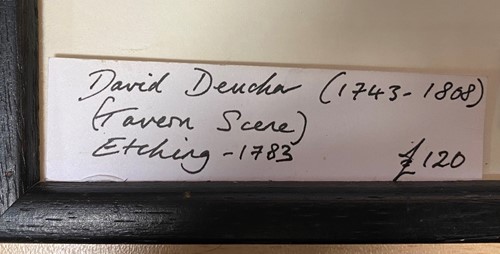 David Deuchar (1743-1808)
(Tavern Scene)
Etching - 1783
£120